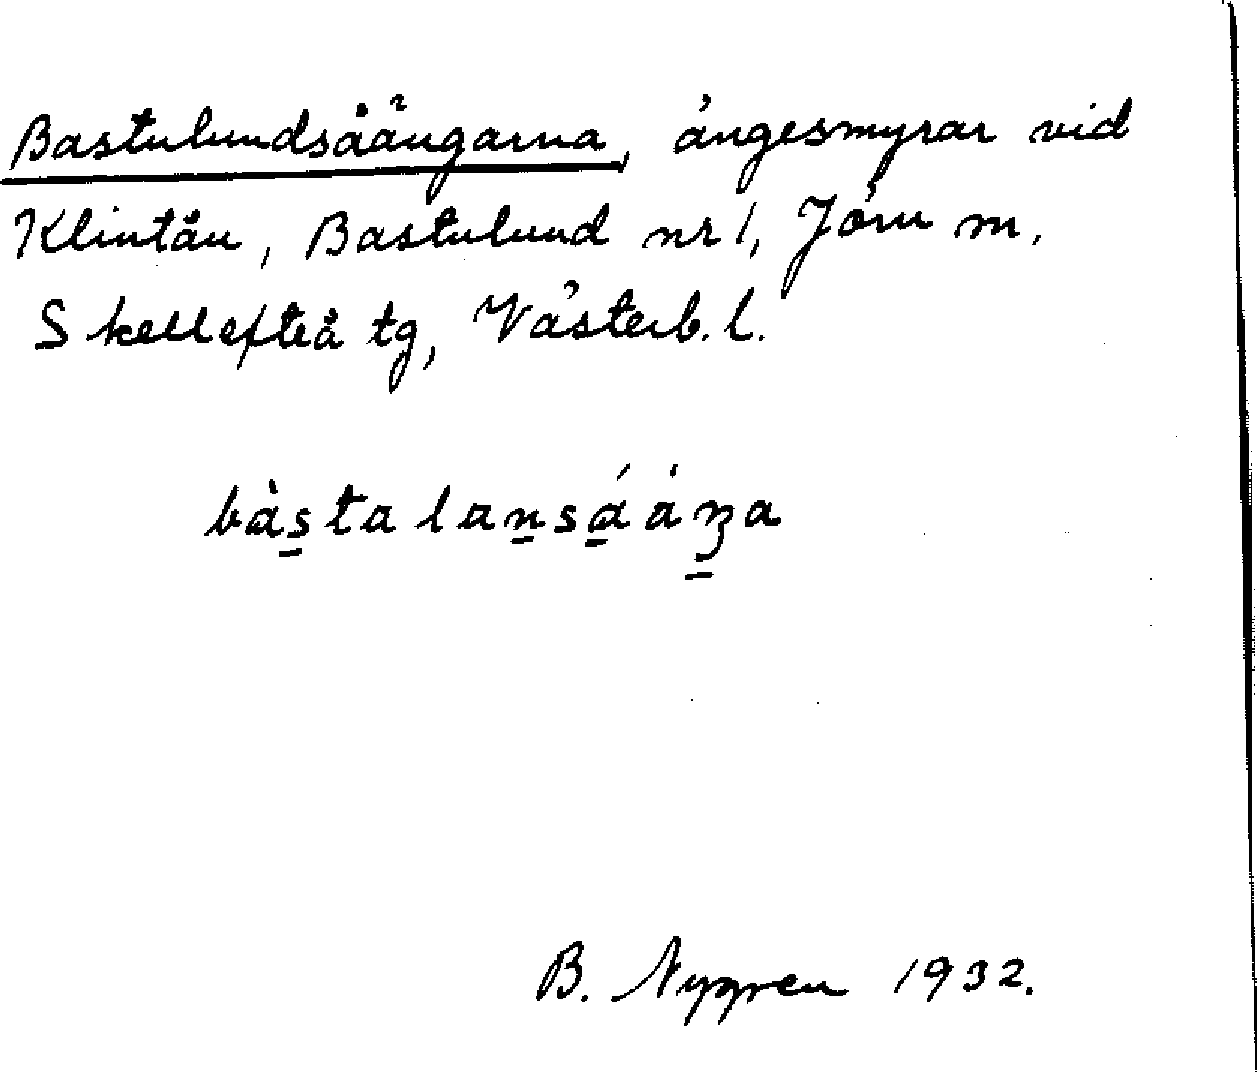 Bastulundsåängarna, ängesmyrar vid
Klintån, Bastulund nr 1, Jörn m,
Skellefteå tg, Västerb. l.
bàs̠talan̠sǻ̠áŋ̠a
B. Nygren 1932.